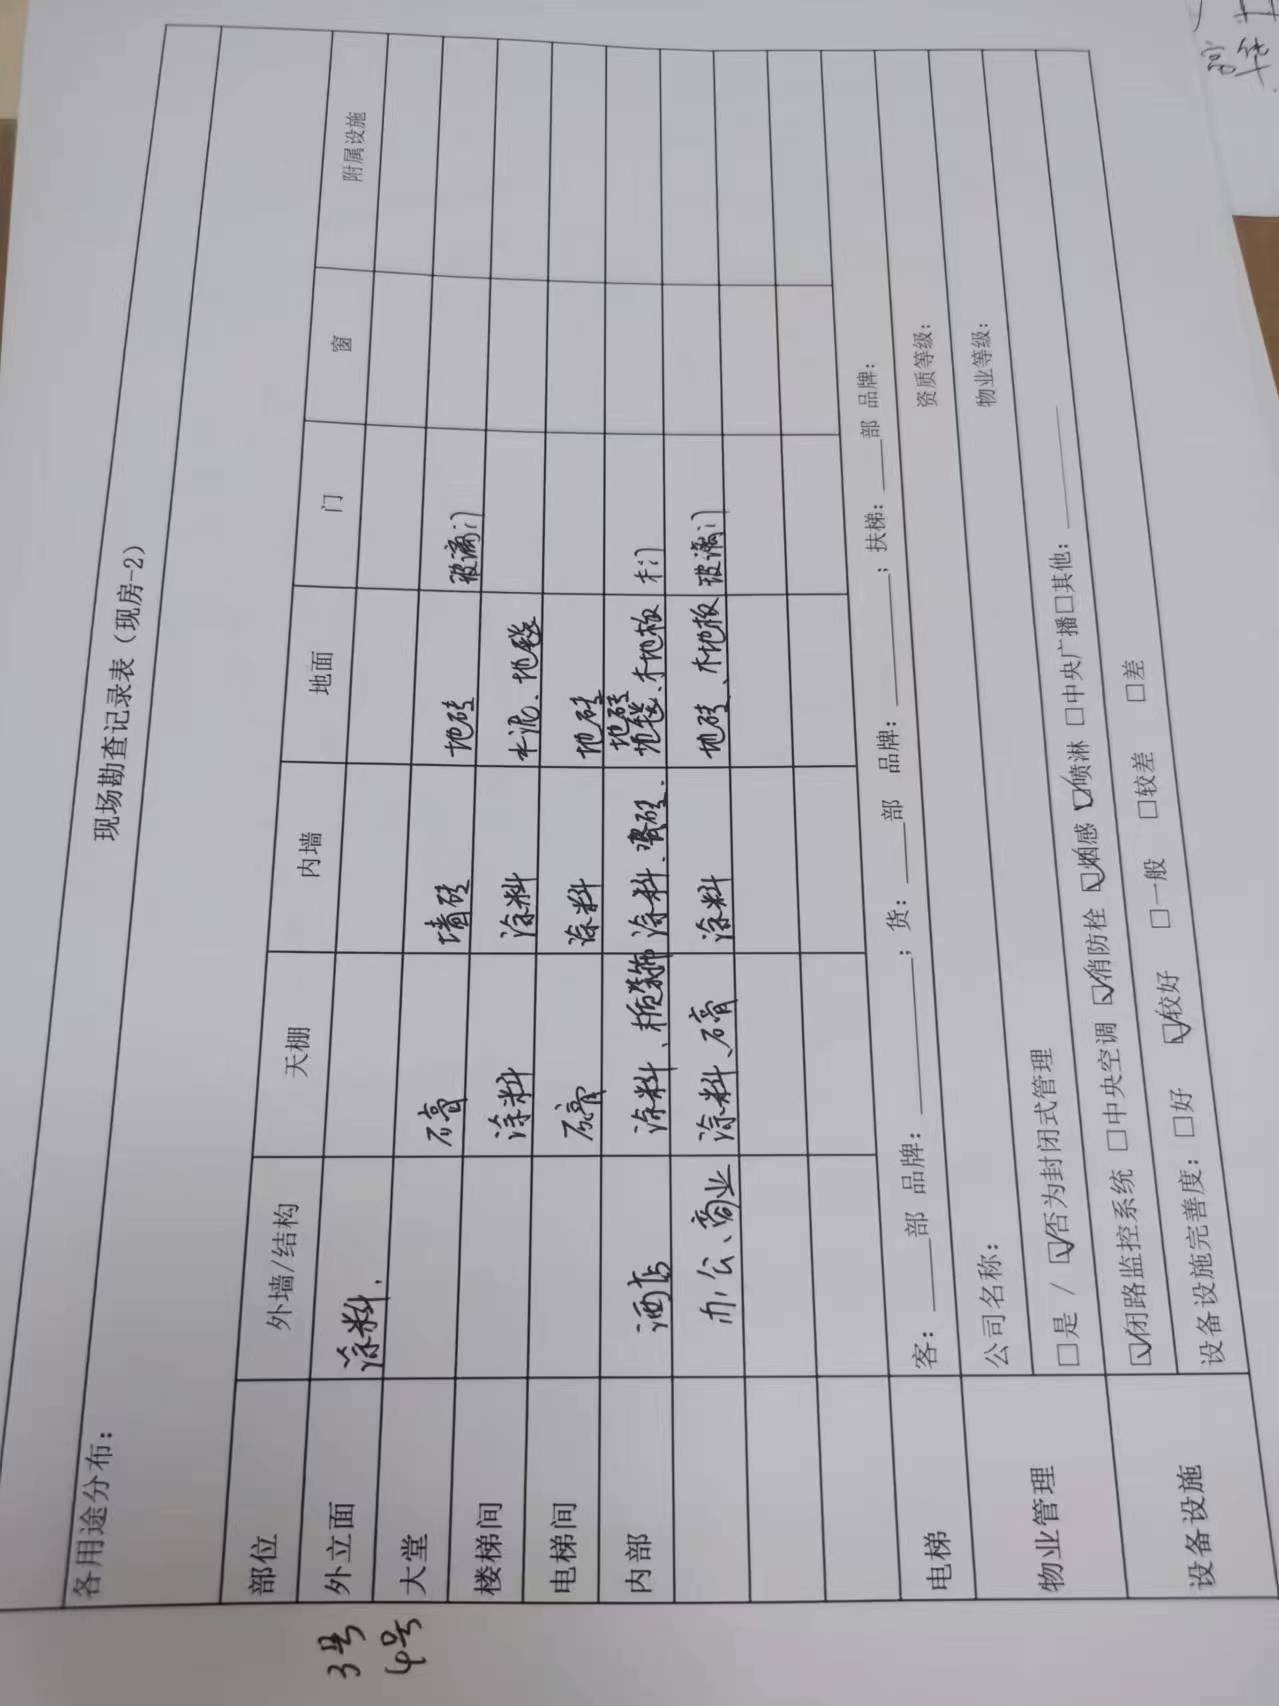 现场勘查记录表（现房-2）
各用途分布：
部位 外墙/结构 天棚 内墙 地面 门 窗 附属设施
3号 外立面 涂料.
4号 大堂 石膏 墙砖 地砖 玻璃门
楼梯间 涂料 涂料 水泥、地毯
电梯间 石膏 涂料 地砖
地砖
内部 酒店 涂料、木质装饰 涂料、墙砖. 地毯、木地板 木门
办公、商业 涂料、石膏 涂料 地砖、木地板 玻璃门
电梯 客：____部 品牌：________；货：____部 品牌：________；扶梯：____部 品牌：
物业管理 公司名称： 资质等级：
□是 / ☑否为封闭式管理 物业等级：
设备设施 ☑闭路监控系统 □中央空调 ☑消防栓 ☑烟感 ☑喷淋 □中央广播□其他：________
设备设施完善度：□好 ☑较好 □一般 □较差 □差